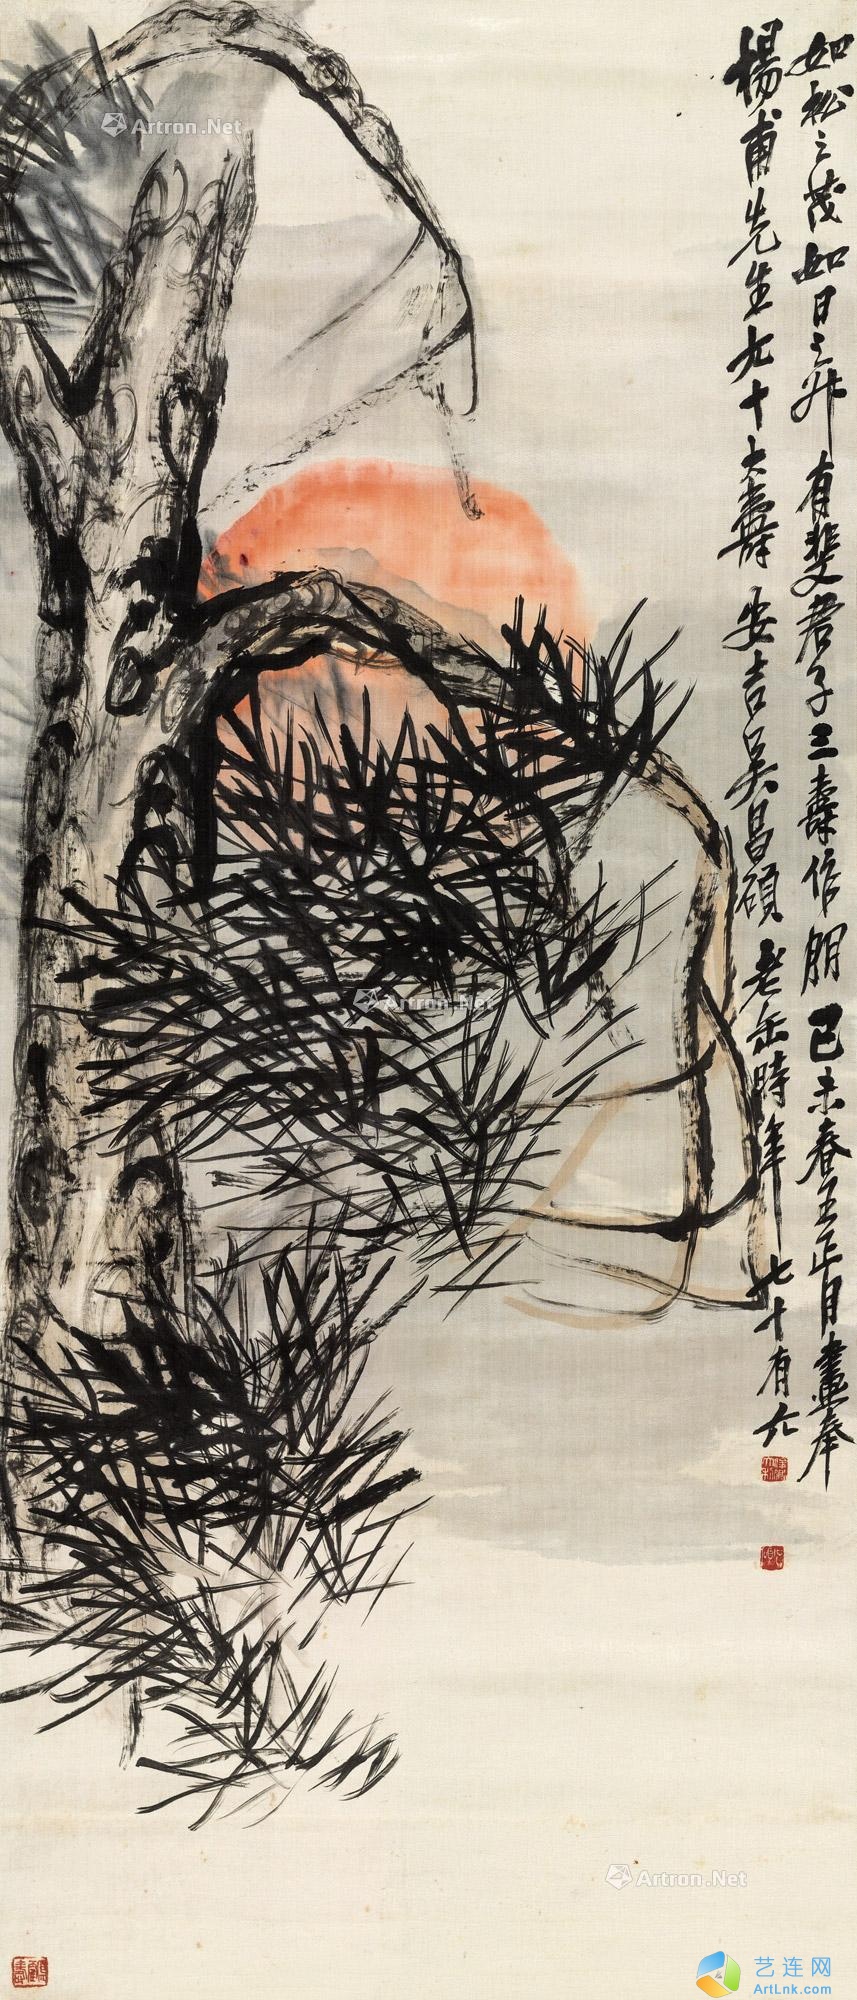 如松之茂如日之升有斐君子三壽作朋己未春王正月畫奉
楊甫先生九十大壽安吉吳昌碩老缶時年七十有六
Artron.Net
Artron.Net
Artron.Net
艺连网
ArtLnk.com